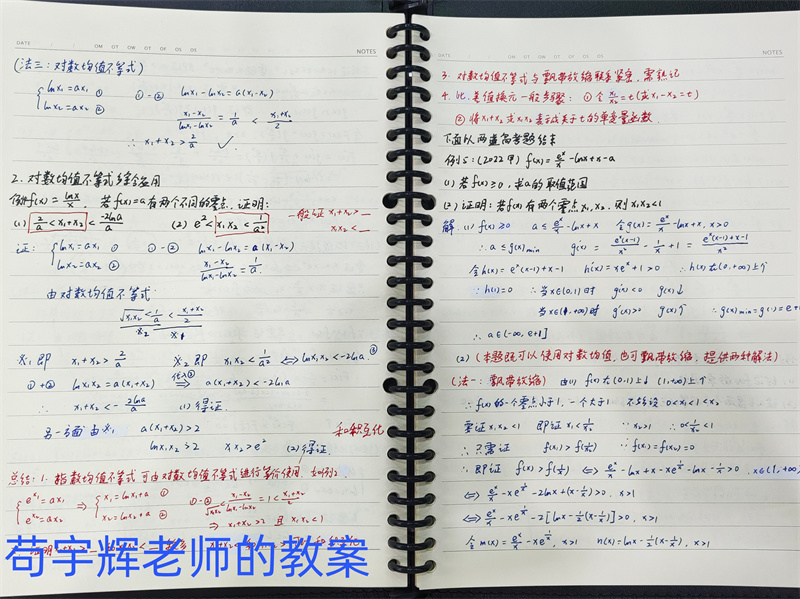 DATE
OM OT OW OT OF OS OS
NOTES
(法三：对数均值不等式)
{ lnx₁=ax₁ ① ①-② lnx₁-lnx₂=a(x₁-x₂)
lnx₂=ax₂ ②
(x₁-x₂)/(lnx₁-lnx₂) = 1/a < (x₁+x₂)/2
∴ x₁+x₂>2/a ✓
2. 对数均值不等式综合应用
例4: f(x)=lnx/x，若f(x)=a有两个不同的零点，证明：
(1) 2/a<x₁+x₂<-2lna/a (2) e²<x₁x₂<1/a² 一般证 x₁+x₂>_
x₁x₂<_
证： { lnx₁=ax₁ ① ①-② lnx₁-lnx₂=a(x₁-x₂)
lnx₂=ax₂ ② (x₁-x₂)/(lnx₁-lnx₂)=1/a.
由对数均值不等式：
√x₁x₂<1/a<(x₁+x₂)/2
※2 ※1
※1即 x₁+x₂>2/a ※2即 x₁x₂<1/a² ⇔lnx₁x₂<-2lna ③
①+② lnx₁x₂=a(x₁+x₂) 代入③ ⇒ a(x₁+x₂)<-2lna
∴ x₁+x₂<-2lna/a (1)得证.
另一方面由※1 a(x₁+x₂)>2 和积互化
lnx₁x₂>2 x₁x₂>e² (2)得证.
总结：1. 指数均值不等式可由对数均值不等式进行等价使用，如例3.
{ e^x₁=ax₁ ⇒ { x₁=lnx₁+a ① ①-② √x₁x₂<(x₁-x₂)/(lnx₁-lnx₂)=1<(x₁+x₂)/2
e^x₂=ax₂ x₂=lnx₂+a ② ⇒ x₁+x₂>2 且 x₁x₂<1
苟宇辉老师的教案
DATE
OM OT OW OT OF OS OS
NOTES
3. 对数均值不等式与飘带放缩联系紧密，需熟记
4. 比、差值换元一般步骤：①令x₁/x₂=t(或x₁-x₂=t)
②将x₁+x₂或x₁x₂表示成关于t的单变量函数.
下面以两道高考题结束
例5:(2022甲) f(x)=e^x/x-lnx+x-a
(1) 若f(x)≥0，求a的取值范围
(2) 证明：若f(x)有两个零点x₁,x₂，则x₁x₂<1
解：(1) f(x)≥0 a≤e^x/x-lnx+x 令g(x)=e^x/x-lnx+x, x>0
∴ a≤g(x)min g'(x)=e^x(x-1)/x²-1/x+1=(e^x(x-1)+x-1)/x²
令h(x)=e^x(x-1)+x-1 h'(x)=xe^x+1>0 ∴h(x)在(0,+∞)上↑
∵h(1)=0 ∴当x∈(0,1)时 g'(x)<0 g(x)↓
当x∈(1,+∞)时 g'(x)>0 g(x)↑ ∴g(x)min=g(1)=e+1
∴ a∈(-∞,e+1]
(2) (本题既可以使用对数均值，也可飘带放缩，提供两种解法)
(法一：飘带放缩) 由(1) f(x)在(0,1)上↓ (1,+∞)上↑
∴f(x)的一个零点小于1，一个大于1 不妨设 0<x₁<1<x₂
要证x₁x₂<1 即证x₁<1/x₂ ∵x₂>1 ∴0<1/x₂<1
∴只需证 f(x₁)>f(1/x₂) ∵f(x₁)=f(x₂)=0
∴即证 f(x)>f(1/x) ⇔ e^x/x-lnx+x-xe^(1/x)-lnx-1/x>0. x∈(1,+∞)
⇔ e^x/x-xe^(1/x)-2lnx+(x-1/x)>0. x>1
⇔ e^x/x-xe^(1/x)-2[lnx-1/2(x-1/x)]>0, x>1
令m(x)=e^x/x-xe^(1/x), x>1 n(x)=lnx-1/2(x-1/x), x>1